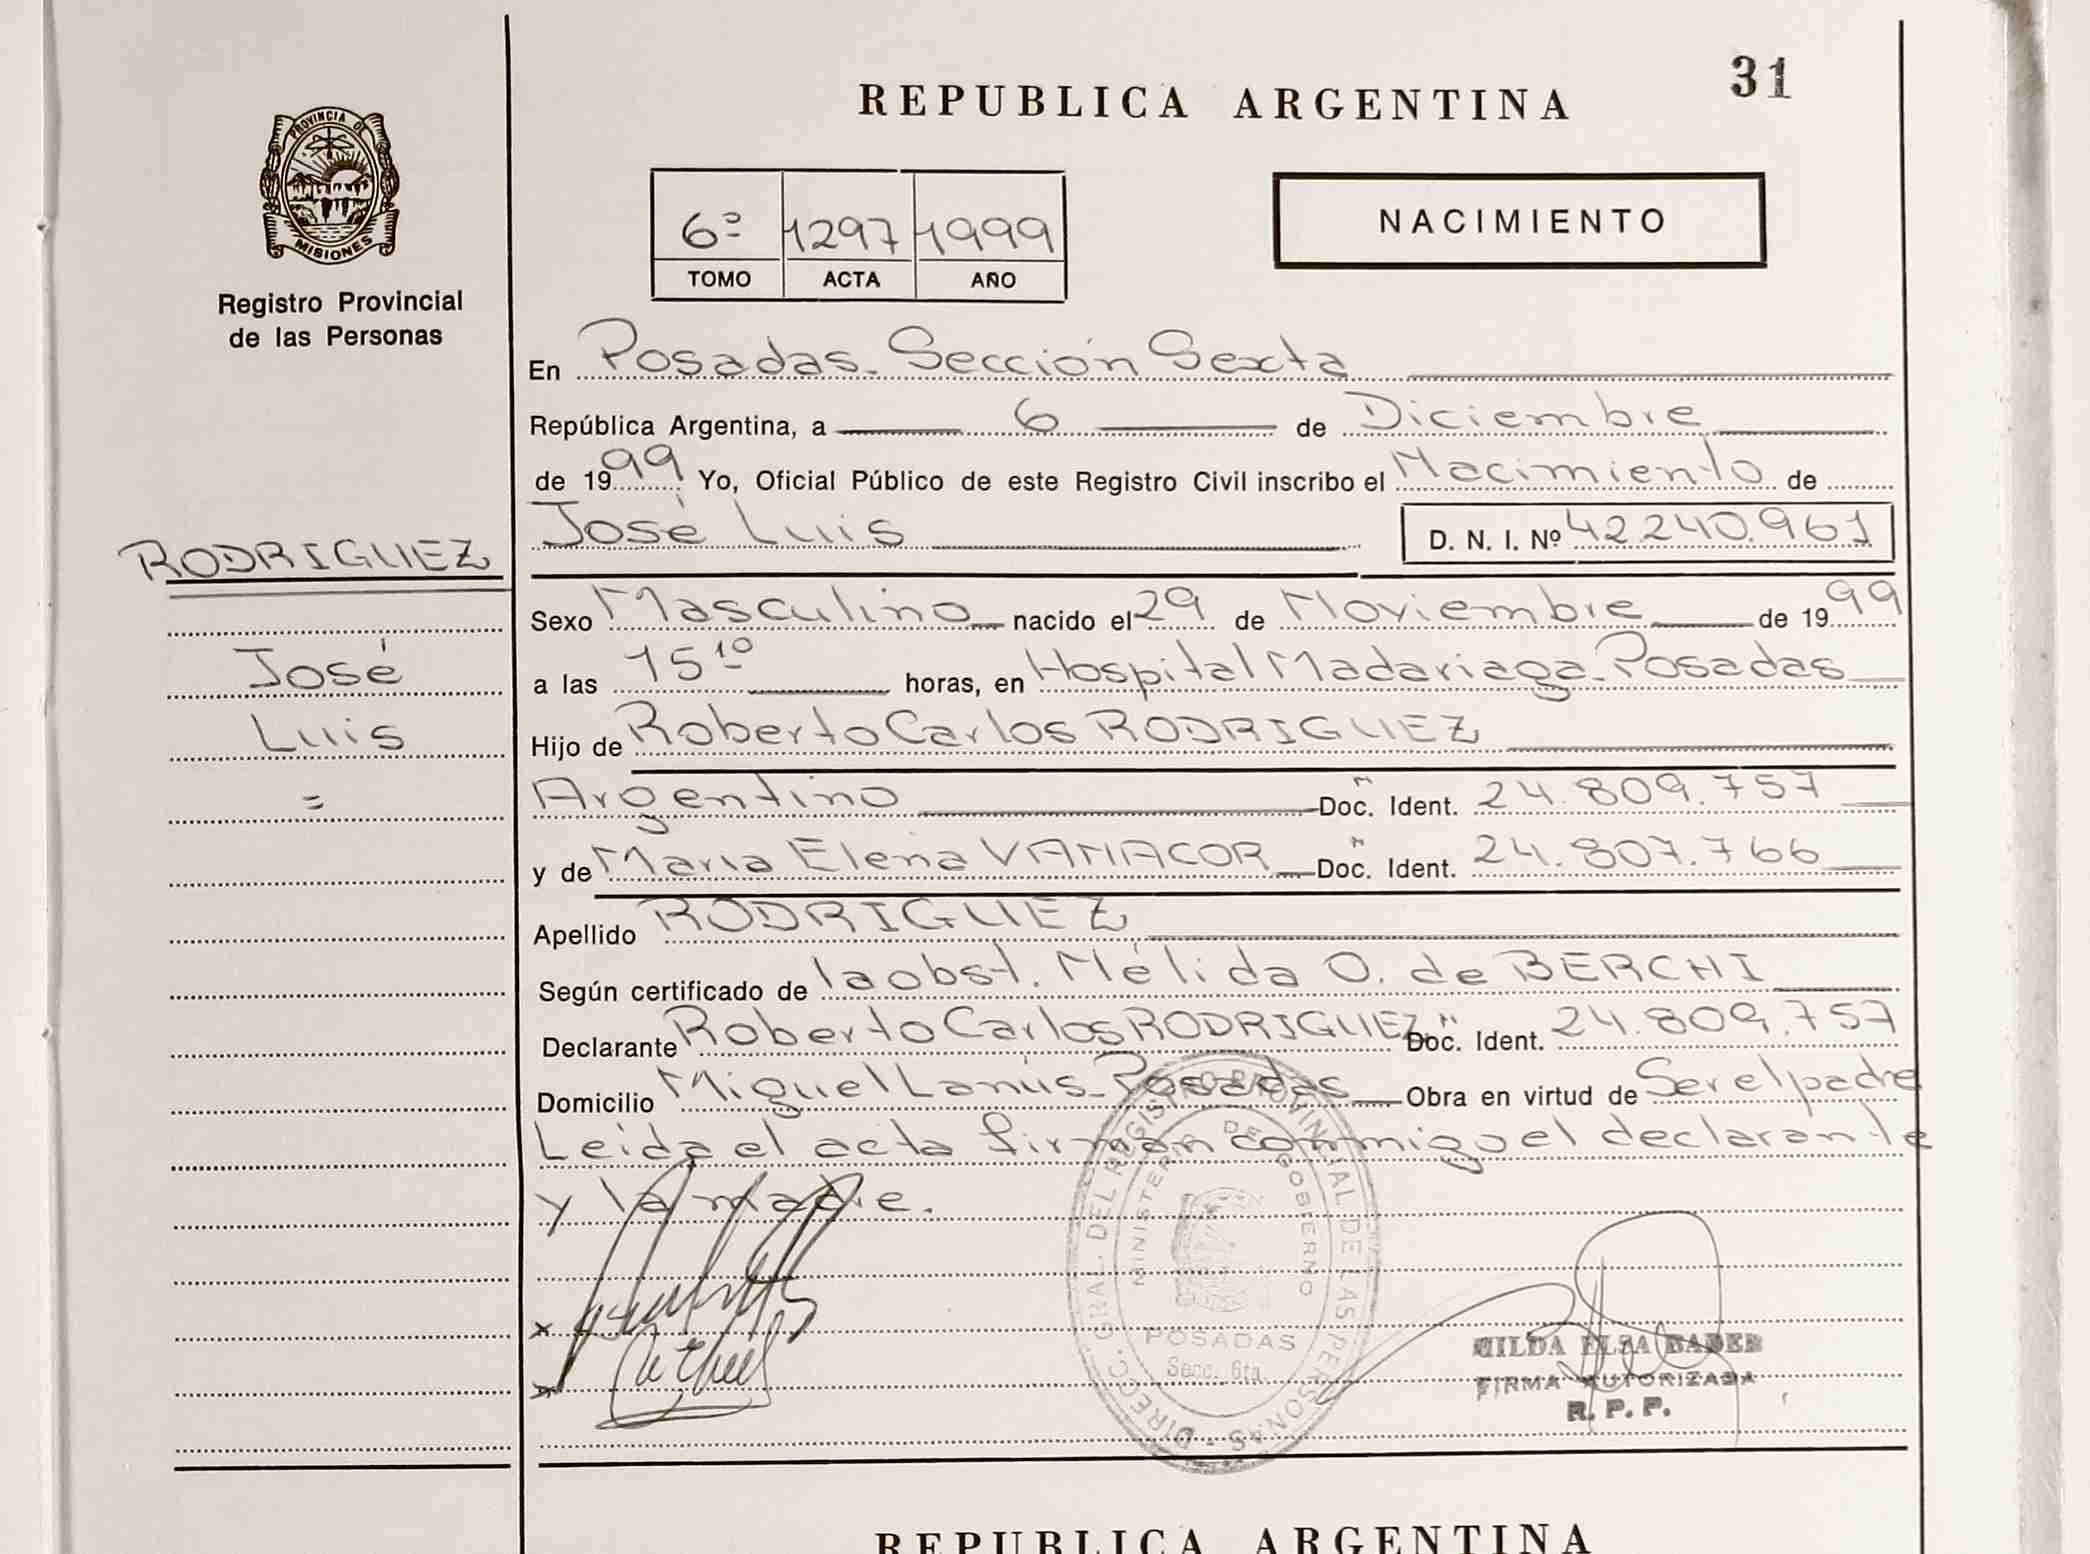 PROVINCIA DE
MISIONES
Registro Provincial
de las Personas
REPUBLICA ARGENTINA
31
6º 1297 1999
TOMO ACTA AÑO
NACIMIENTO
En Posadas - Sección Sexta
República Argentina, a 6 de Diciembre
de 1999 Yo, Oficial Público de este Registro Civil inscribo el Nacimiento de
RODRIGUEZ
José Luis D. N. I. Nº 42.240.961
Sexo Masculino nacido el 29 de Noviembre de 1999
José
a las 15 10 horas, en Hospital Madariaga - Posadas
Luis
Hijo de Roberto Carlos RODRIGUEZ
=
Argentino Doc. Ident. 24.809.757
y de Maria Elena VANACOR Doc. Ident. 24.807.766
Apellido RODRIGUEZ
Según certificado de la obst. Nélida O. de BERCHI
Declarante Roberto Carlos RODRIGUEZ Doc. Ident. 24.809.757
Domicilio Miguel Lanús - Posadas Obra en virtud de Ser el padre
Leida el acta firman conmigo el declarante
y la madre.
DIREC. GRAL. DEL REGISTRO PROVINCIAL DE LAS PERSONAS
MINISTERIO DE GOBIERNO
POSADAS
Secc. 6ta.
x
x
HILDA ELSA BADER
FIRMA AUTORIZADA
R. P. P.
REPUBLICA ARGENTINA